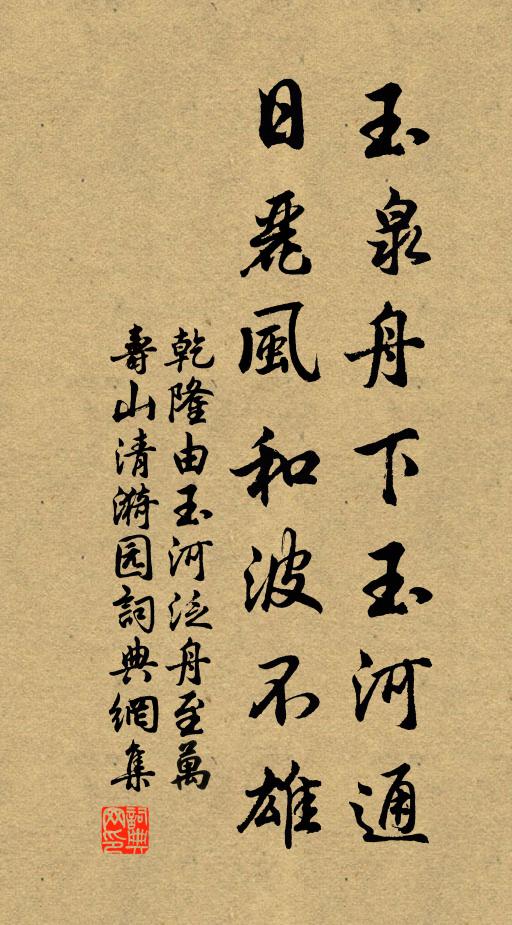 玉泉舟下玉河通
日麗風和波不雄
乾隆由玉河泛舟至萬
壽山清漪园詞典網集
詞典網印